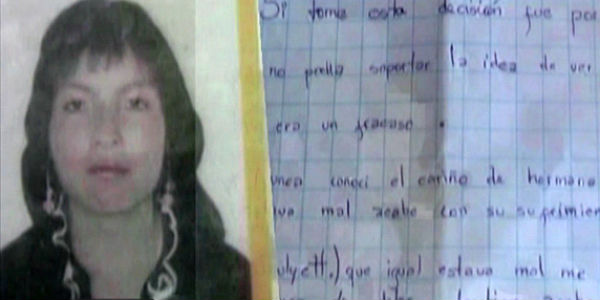 Si tome esta decisión fue por
no podia soportar la idea de ver
era un fracaso.
unca conoci el cariño de hermano
iva mal acabe con su suprimien
ulyett.) que igual estava mal me